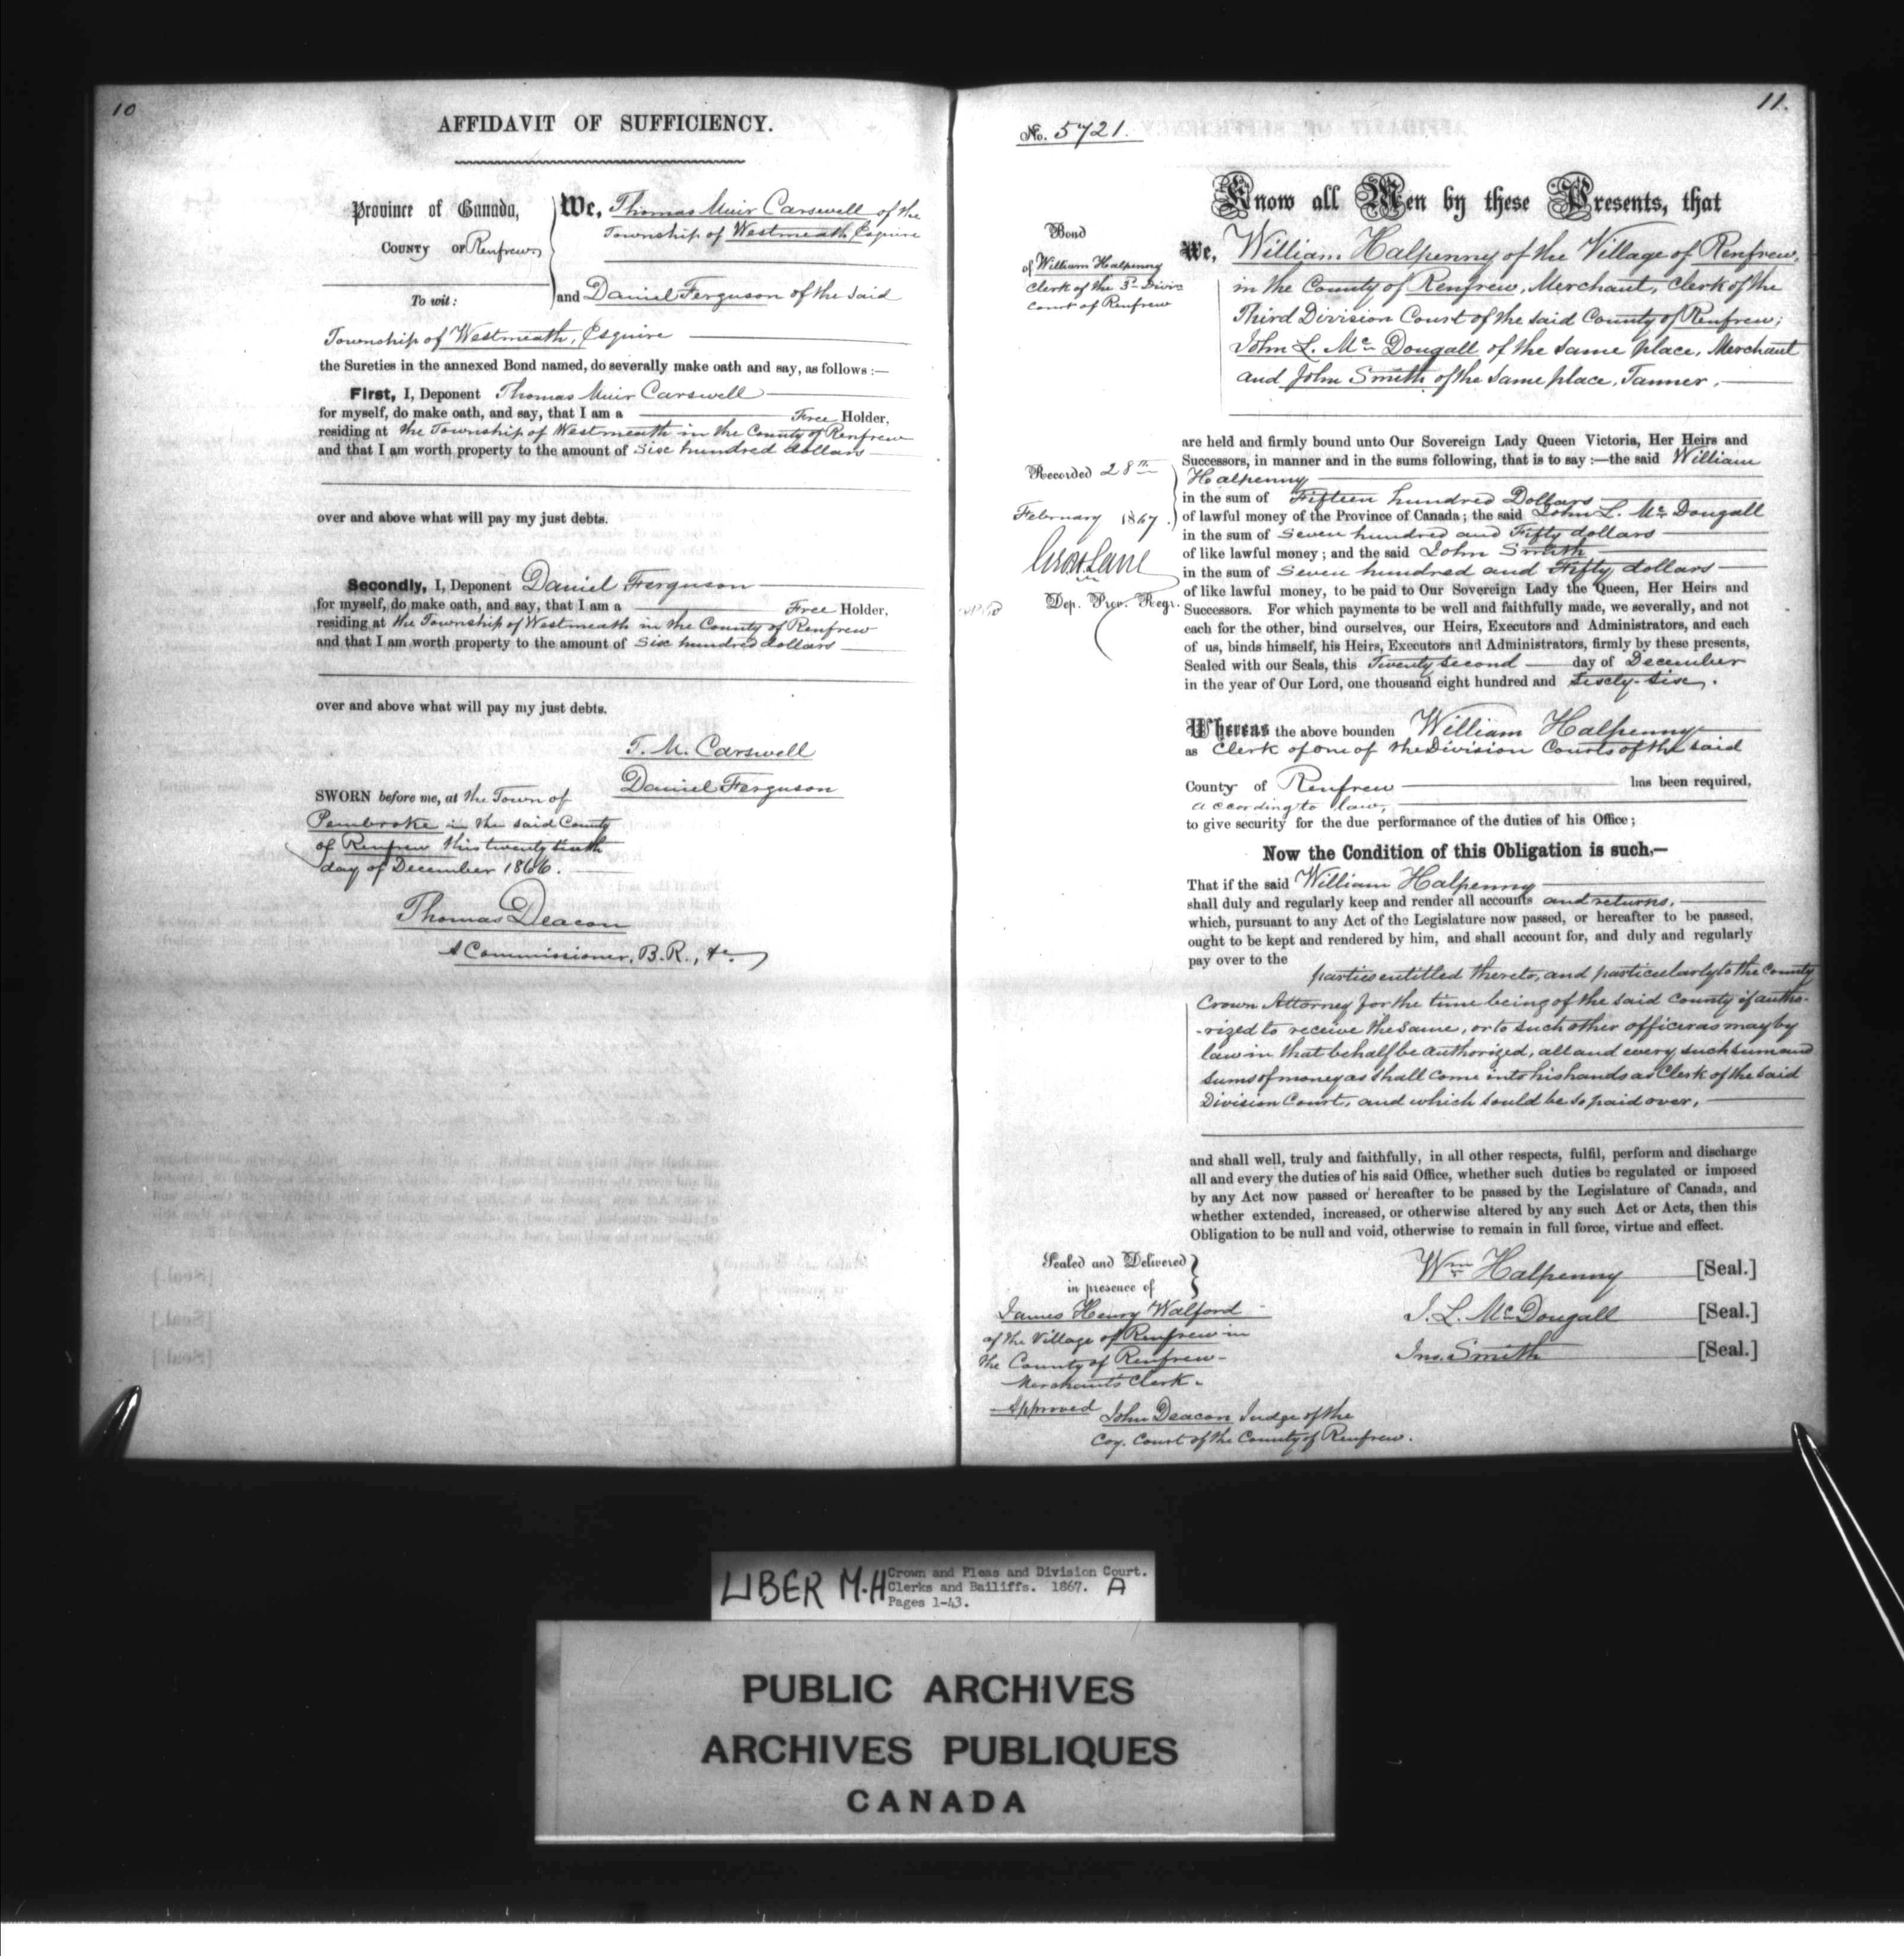 10
AFFIDAVIT OF SUFFICIENCY.
Province of Canada,
COUNTY OF Renfrew
To wit:
We, Thomas Muir Carswell of the
Township of Westmeath Esquire
and Daniel Ferguson of the said
Township of Westmeath, Esquire
the Sureties in the annexed Bond named, do severally make oath and say, as follows :—
First, I, Deponent Thomas Muir Carswell
for myself, do make oath, and say, that I am a Free Holder,
residing at the Township of Westmeath in the County of Renfrew
and that I am worth property to the amount of Six hundred dollars
over and above what will pay my just debts.
Secondly, I, Deponent Daniel Ferguson
for myself, do make oath, and say, that I am a Free Holder,
residing at the Township of Westmeath in the County of Renfrew
and that I am worth property to the amount of Six hundred dollars
over and above what will pay my just debts.
T. M. Carswell
Daniel Ferguson
SWORN before me, at the Town of
Pembroke in the said County
of Renfrew this twenty
day of December 1866.
Thomas Deacon
A Commissioner, B.R., &c.
11.
No. 5721.
Know all Men by these Presents, that
Bond
of William Halpenny
Clerk of the 3rd Divis
Court of Renfrew
We, William Halpenny of the Village of Renfrew,
in the County of Renfrew, Merchant, Clerk of the
Third Division Court of the said County of Renfrew;
John L. Mc Dougall of the same place, Merchant
and John Smith of the same place, Tanner.
are held and firmly bound unto Our Sovereign Lady Queen Victoria, Her Heirs and
Successors, in manner and in the sums following, that is to say :—the said William
Halpenny
in the sum of Fifteen hundred Dollars
of lawful money of the Province of Canada; the said John L. Mc Dougall
in the sum of Seven hundred and Fifty dollars
of like lawful money; and the said John Smith
in the sum of Seven hundred and Fifty dollars
of like lawful money, to be paid to Our Sovereign Lady the Queen, Her Heirs and
Successors. For which payments to be well and faithfully made, we severally, and not
each for the other, bind ourselves, our Heirs, Executors and Administrators, and each
of us, binds himself, his Heirs, Executors and Administrators, firmly by these presents,
Sealed with our Seals, this Twenty second day of December
in the year of Our Lord, one thousand eight hundred and sixty-six.
Recorded 28th
February 1867.
Dep. Prov. Regr.
Whereas the above bounden William Halpenny
as Clerk of one of the Division Courts of the said
County of Renfrew has been required,
according to law,
to give security for the due performance of the duties of his Office;
Now the Condition of this Obligation is such,—
That if the said William Halpenny
shall duly and regularly keep and render all accounts and returns,
which, pursuant to any Act of the Legislature now passed, or hereafter to be passed,
ought to be kept and rendered by him, and shall account for, and duly and regularly
pay over to the
parties entitled thereto, and particularly to the County
Crown Attorney for the time being of the said County if autho-
-rized to receive the same, or to such other officer as may by
law in that behalf be authorized, all and every such sum and
sums of money as shall come into his hands as Clerk of the said
Division Court, and which sould be so paid over,
and shall well, truly and faithfully, in all other respects, fulfil, perform and discharge
all and every the duties of his said Office, whether such duties be regulated or imposed
by any Act now passed or hereafter to be passed by the Legislature of Canada, and
whether extended, increased, or otherwise altered by any such Act or Acts, then this
Obligation to be null and void, otherwise to remain in full force, virtue and effect.
Sealed and Delivered
in presence of
James Henry Walford
of the Village of Renfrew in
the County of Renfrew
Merchant's Clerk.
Wm Halpenny [Seal.]
J. L. McDougall [Seal.]
Jno. Smith [Seal.]
Approved John Deacon Judge of the
Coy. Court of the County of Renfrew.
LIBER M.H Crown and Pleas and Division Court.
Clerks and Bailiffs. 1867. A
Pages 1-43.
PUBLIC ARCHIVES
ARCHIVES PUBLIQUES
CANADA